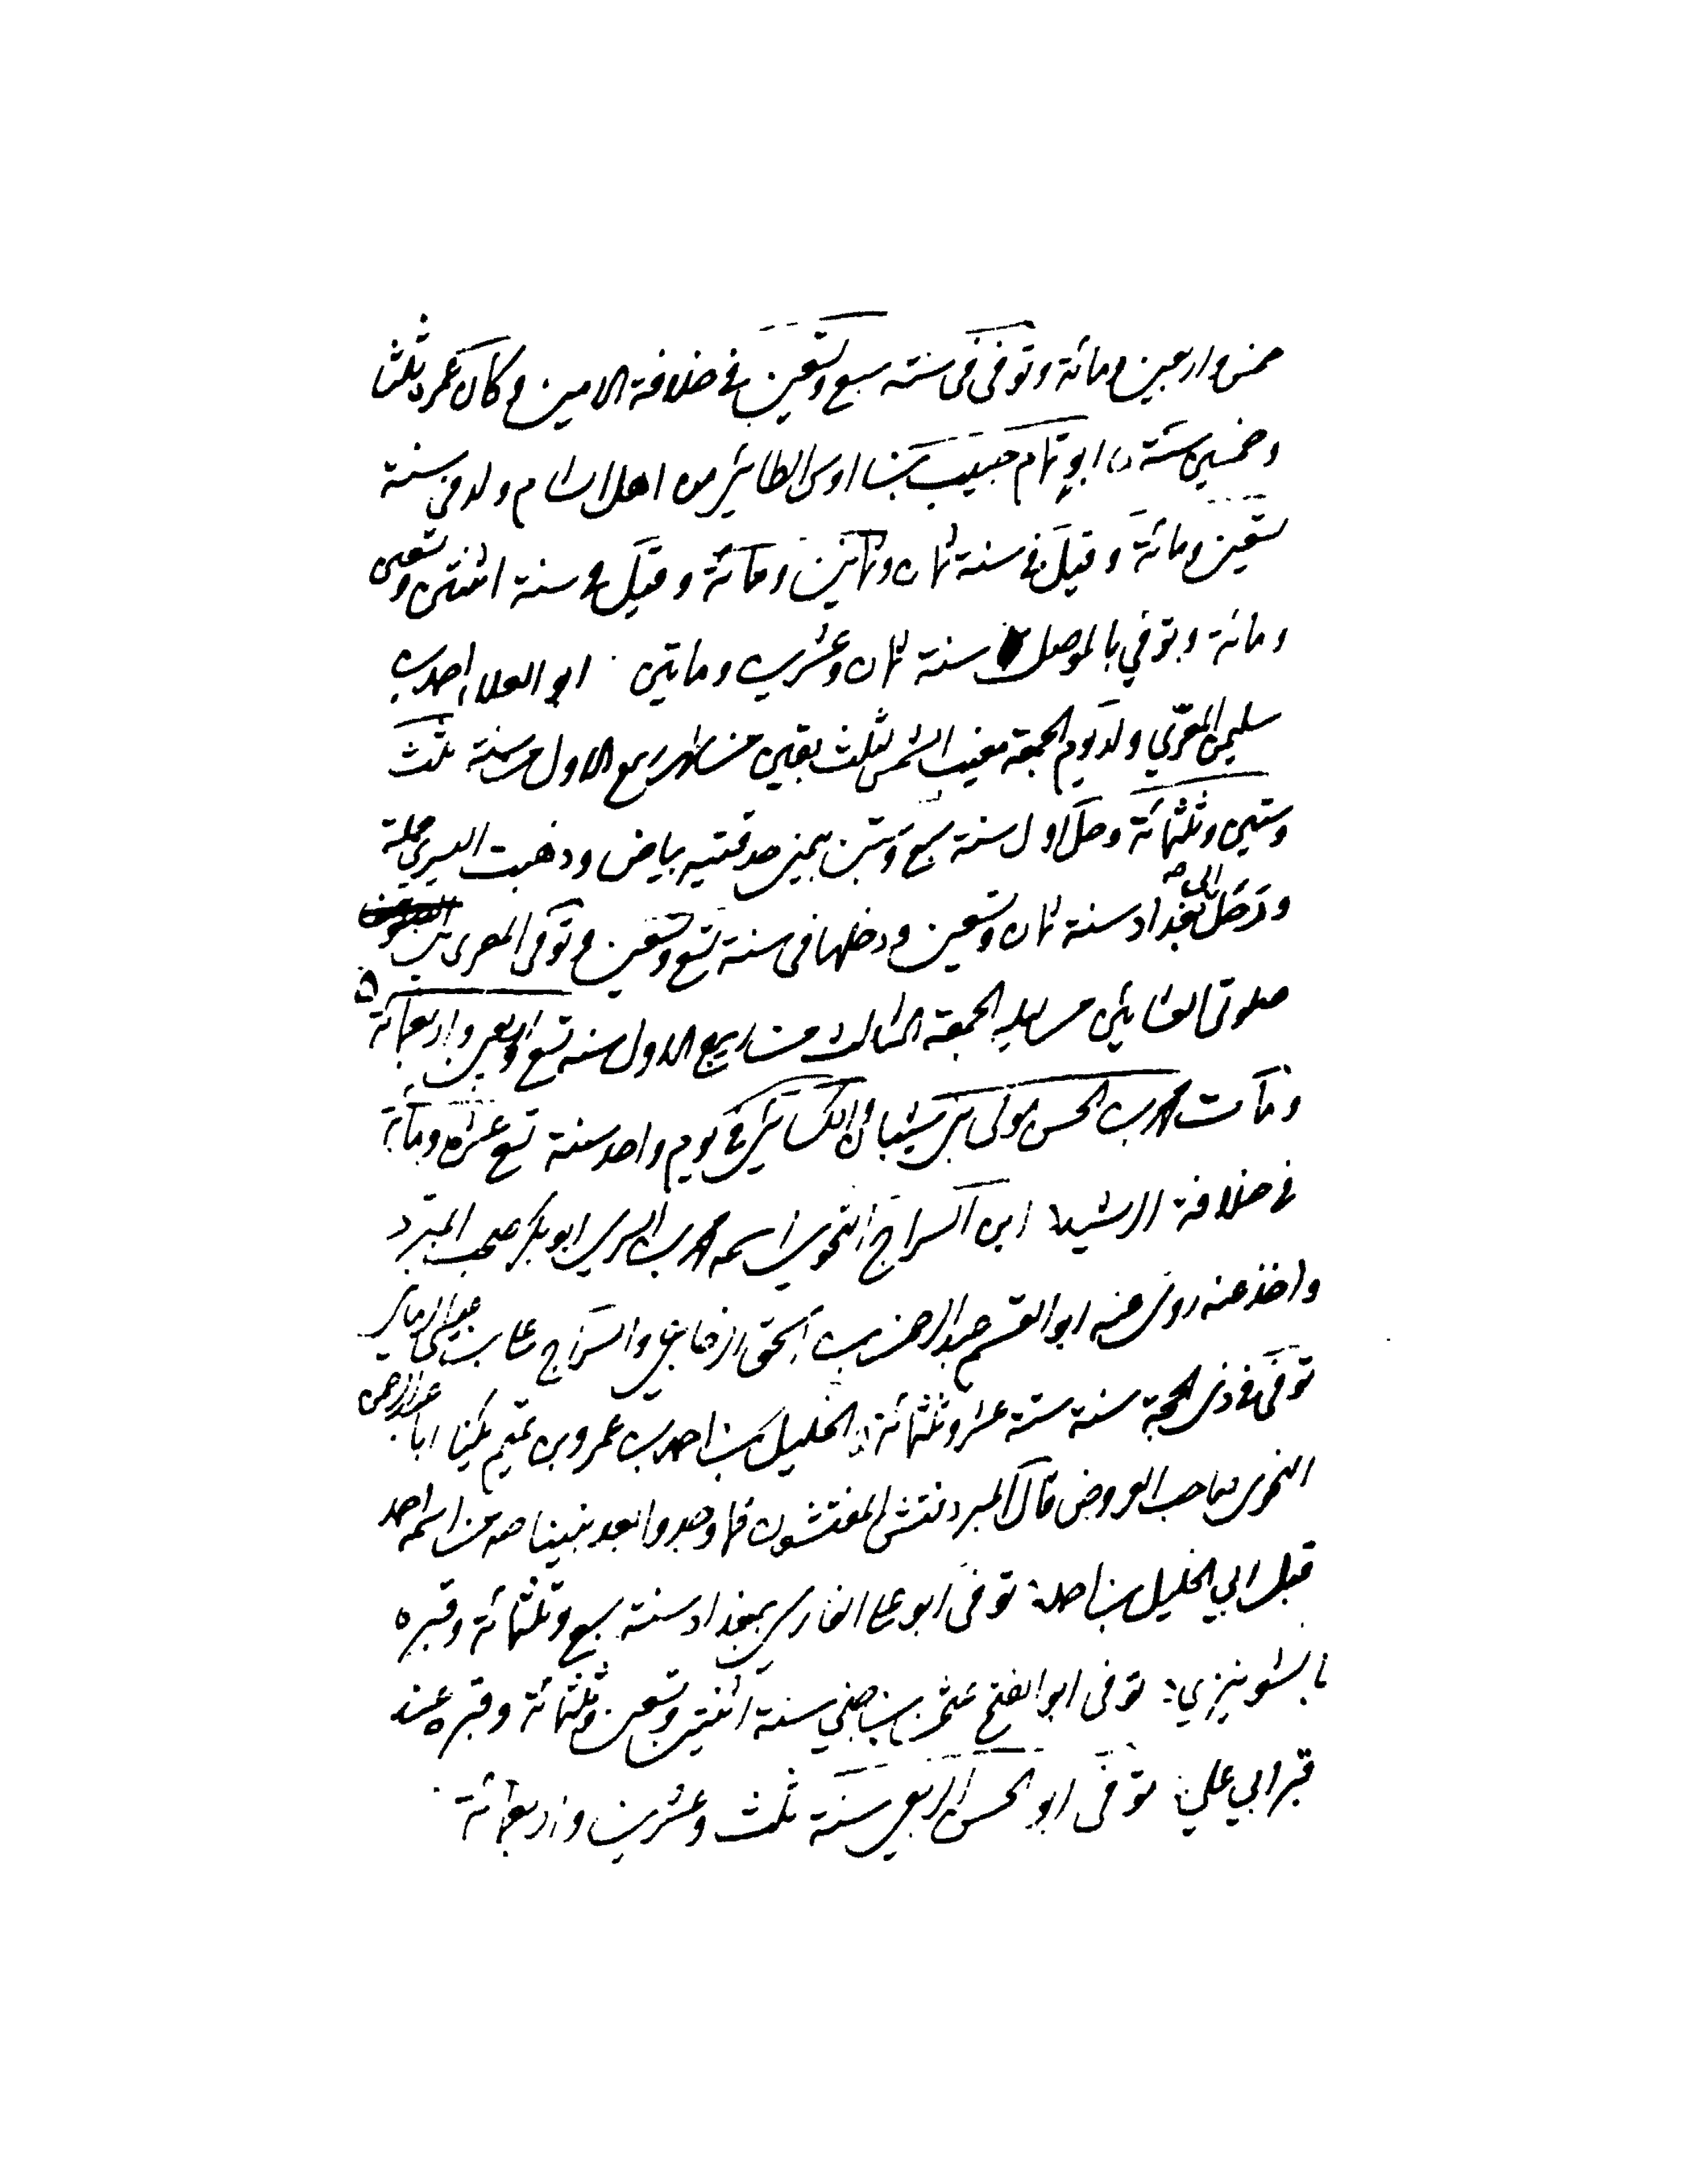 خمس واربعين ومائة وتوفى فى سنة سبع وتسعين فى خلافة الامين وكان عمره ثلثا
وخمسين سنة ابو تمام حبيب بن اوس الطائى من اهل الشام ولد فى سنة
تسعين ومائة وقيل فى سنة ثمان وثمانين ومائة وقيل فى سنة اثنتين وتسعين
ومائة وتوفي بالموصل سنة ثمان وعشرين ومايتين ابو العلاء احمد بن
سليمن المعرّي ولد يوم الجمعة مغيب الشمس لثلث بقين من شهر ربيع الاول من سنة ثلث
وستين وثلثمائة وجدّر اول سنة سبع وستين بيمنى حدقتيه بياض وذهبت اليسرى جملة
ورحل الى بغداد سنة ثمان وتسعين ودخلها فى سنة تسع وتسعين وتوفى المعرى بين
صلوتى العشائين من ليلة الجمعة الثالث من ربيع الاول سنة تسع واربعين واربعمائة
ومات محمد بن الحسن مولى بنى شيبان والكسائى فى يوم واحد سنة تسع عشرة ومائة
فى خلافة الرشيد ابن السراج النحوي اسمه محمد بن السري ابو بكر صحب المبرّد
واخذ عنه روى عنه ابو القسم عبد الرحمن بن اسحق الزجاجي والسراج على بن عيسى الرمانى
توفى فى ذى الحجة سنة ستة عشر وثلثمائة الخليل بن احمد بن عمرو بن تميم يكنا ابا عبد الرحمن
النحوى صاحب العروض قال المبرد فتش المفتشون فما وجدوا بعد نبينا صه من اسمه احمد
قبل ابي الخليل بن احمد توفى ابو على الفارسي ببغداد سنة سبع وثلثمائة وقبره
بالشونيزي توفى ابو الفتح عثمن بن جني سنة اثنتين وتسعين وثلثمائة وقبره عند
قبر ابي علي توفى ابو الحسن الربعي سنة ثلث وعشرين واربعمائة